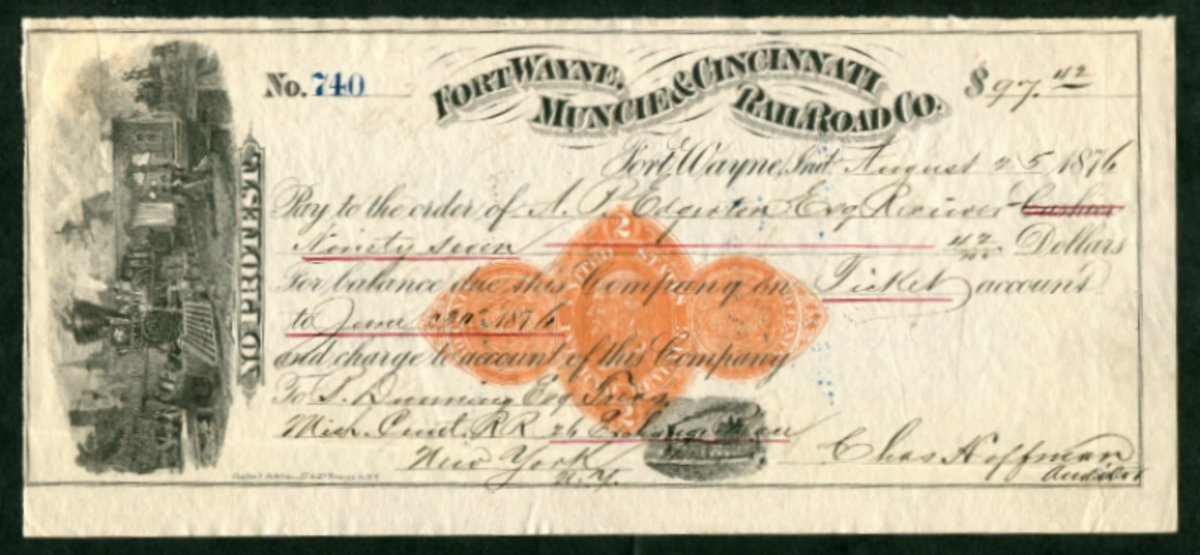 No. 740
FORT WAYNE, MUNCIE & CINCINNATI RAILROAD CO.
$97.42
Fort Wayne, Ind. August 25 1876
NO PROTEST
Pay to the order of A. P. Edgerton Esq Receiver
Ninety seven 42/100 Dollars
For balance due this Company on Ticket account
to June 1876
and charge to account of this Company.
To Esq Treas
Mich. Cent. RR 26 Exchange Place
New York
N.Y.
Chas Hoffman
Auditor
2
UNITED STATES
2